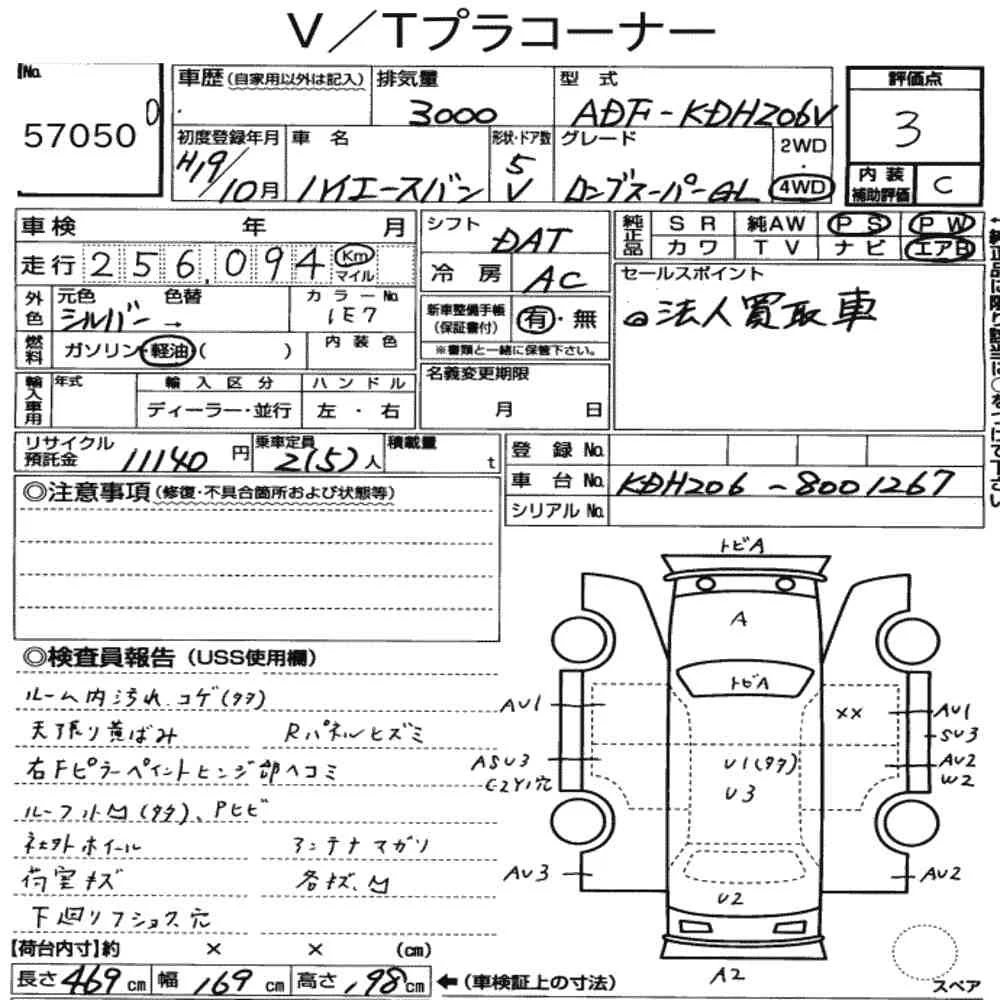 V／Tプラコーナー
No.
57050
0
車歴（自家用以外は記入）
排気量 3000
型式 ADF-KDH206V
評価点
3
初度登録年月 H19/10月
車名 ハイエースバン
形状・ドア数 5 V
グレード ロングスーパーGL
2WD
・
4WD
内装補助評価 C
車検 年 月
走行 256,094 Km マイル
シフト DAT
冷房 AC
純正品 SR 純AW PS PW
カワ TV ナビ エアB
外色 元色 色替 シルバー →
カラーNo. 1E7
燃料 ガソリン・軽油（ ）
内装色
新車整備手帳（保証書付） 有・無
※書類と一緒に保管下さい。
セールスポイント
◎法人買取車
輸入車用 年式 輸入区分 ハンドル
ディーラー・並行 左・右
名義変更期限
月 日
リサイクル預託金 11140円
乗車定員 2(5)人
積載量 t
登録No.
車台No. KDH206-8001267
シリアルNo.
◎注意事項（修復・不具合箇所および状態等）
◎検査員報告（USS使用欄）
ルーム内汚れ.コゲ(タタ)
天張り黄ばみ Rパネルヒズミ
右Fピラーペイントヒンジ部ヘコミ
ルーフ
、Pヒビ
社外ホイール アンテナマガリ
荷室キズ 各キズ、
下廻り
穴
【荷台内寸】約 × × （cm）
長さ469cm 幅169cm 高さ198cm ←（車検証上の寸法）
トビA
A
トビA
AU1
××
AU1
SU3
ASU3
U1(タタ)
AU2
C2Y1穴
U3
W2
AU3
AU2
U2
A2
スペア